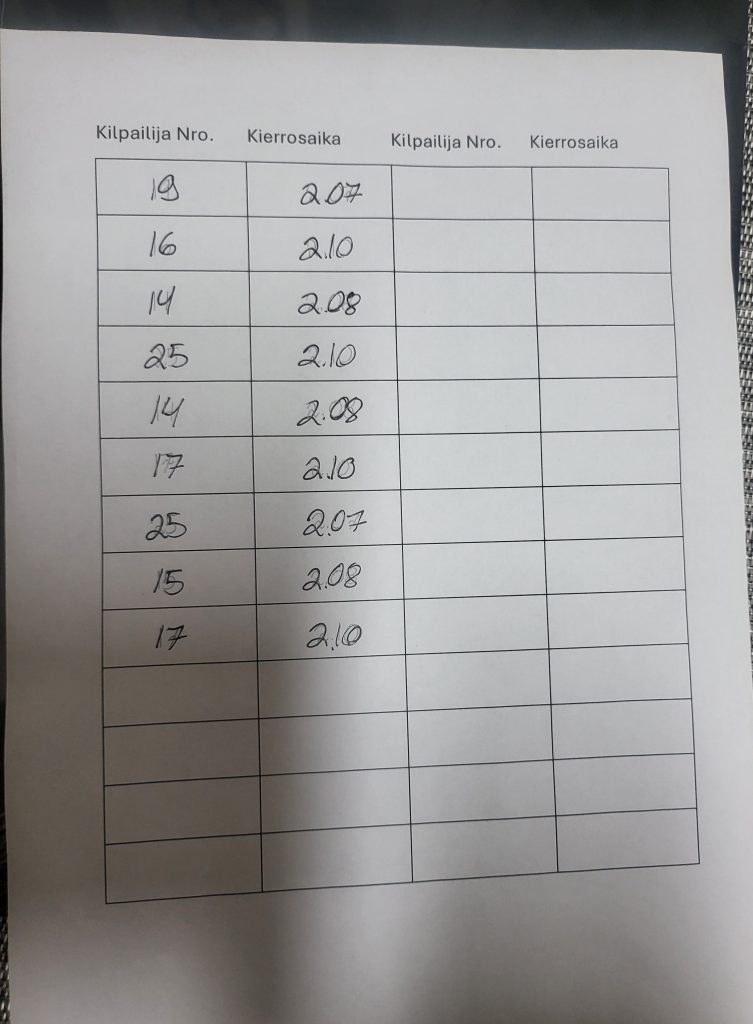 Kilpailija Nro. Kierrosaika Kilpailija Nro. Kierrosaika
19 2.07
16 2.10
14 2.08
25 2.10
14 2.08
17 2.10
25 2.07
15 2.08
17 2.10